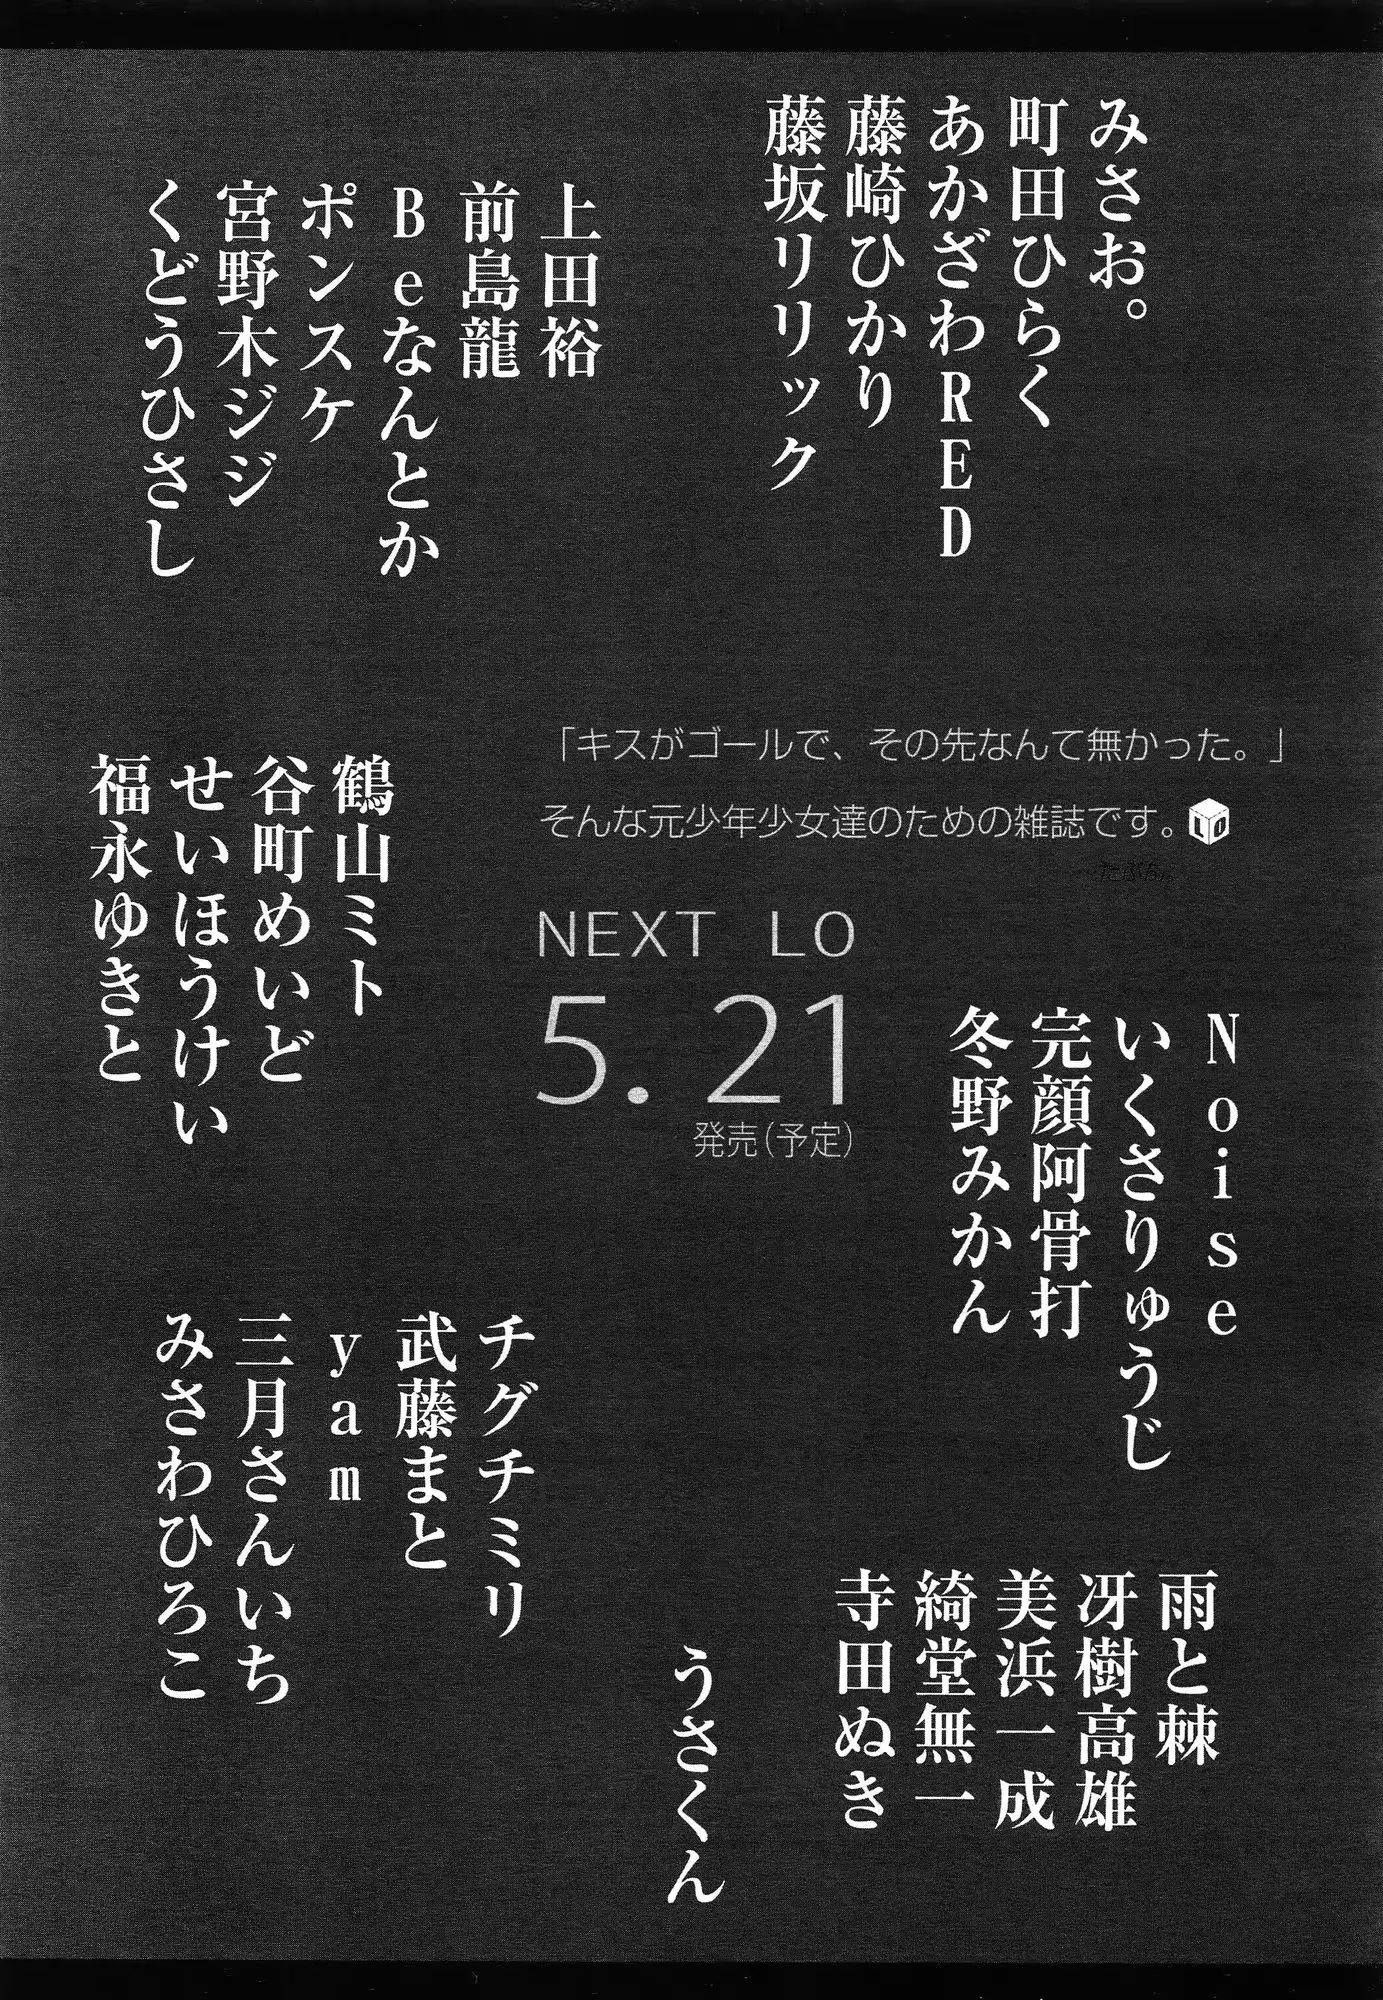 みさお。
町田ひらく
あかざわRED
藤崎ひかり
藤坂リリック
上田裕
前島龍
Beなんとか
ポンスケ
宮野木ジジ
くどうひさし
「キスがゴールで、その先なんて無かった。」
そんな元少年少女達のための雑誌です。LO
たぶん。
NEXT LO
5.21
発売(予定)
鶴山ミト
谷町めいど
せいほうけい
福永ゆきと
Noise
いくさりゅうじ
完顔阿骨打
冬野みかん
チグチミリ
武藤まと
yam
三月さんいち
みさわひろこ
雨と棘
冴樹高雄
美浜一成
綺堂無一
寺田ぬき
うさくん